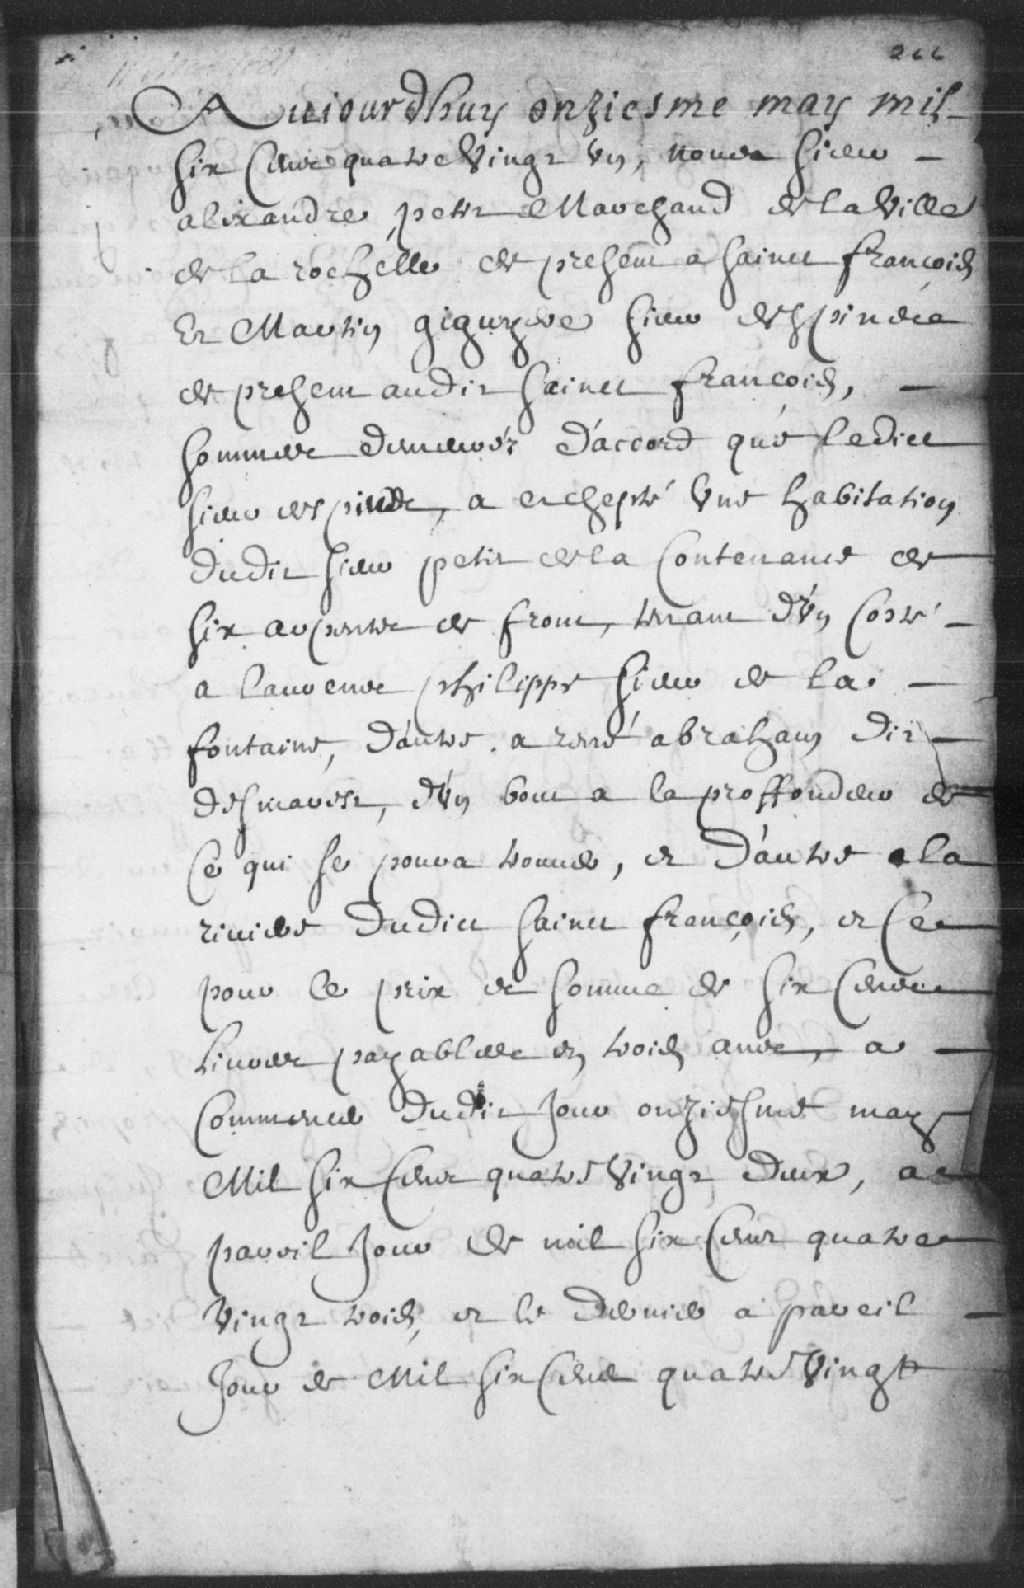 Aujourdhuy onziesme may mil
six Cens quatre Vingt Un, nous sieur
alixandre petit Marchand de la Ville
de la rochelle de present a sainct françois
Et Martin giguyere sieur despinde
de present audit sainct françois,
sommes demeurés d'accord que ledict
sieur despinde, a achepté Une habitation
dudit sieur petit de la Contenance de
six arpents de front, tenant d'Un Costé
a laurens philippe sieur de la
fontaine, d'autre a rené abraham dit
desmarest, d'Un bout a la proffondeur de
Ce qui se poura trouver, et d'autre a la
riviere dudict sainct françois, et Ce
pour le prix et somme de six Cens
livres payables en trois ans, a
Commencer dudit Jour onziesme may
Mil six Cens quatre Vingt deux, a
pareil Jour de mil six Cens quatre
Vingt trois, et le dernier a pareil
Jour de Mil six Cens quatre Vingt